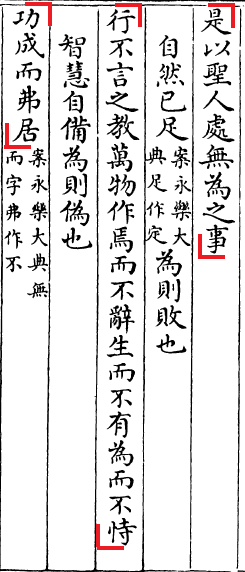 是以聖人處無為之事
自然已足案永樂大典足作定為則敗也
行不言之教萬物作焉而不辭生而不有為而不恃
智慧自備為則偽也
功成而弗居案永樂大典無而字弗作不